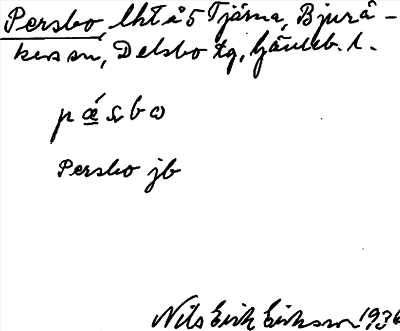 Persbo, lht å 5 Tjärna, Bjurå-
kers sn, Delsbo tg, Gävleb. l.
pǽsbo
Persbo jb
Nils Erik Eriksson 1936